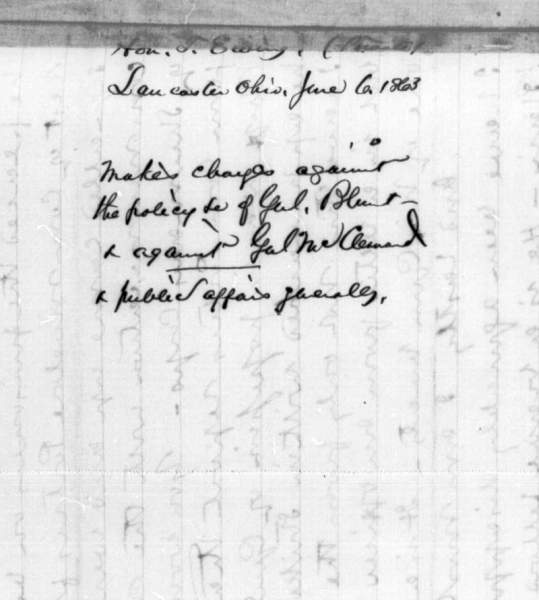 Hon. T. Ewing.
Lancaster Ohio. June 6. 1863
Makes charges against
the policy &c of Genl. Blunt -
& against Genl McClernand
& public affairs generally.